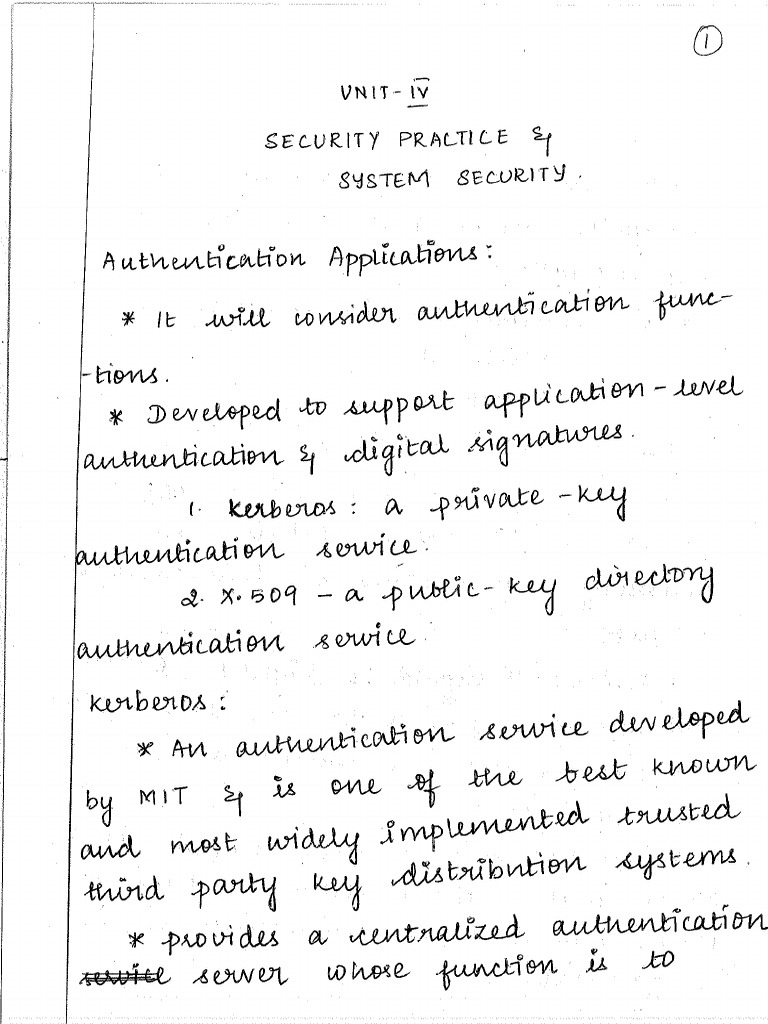 1
UNIT-IV
SECURITY PRACTICE &
SYSTEM SECURITY.
Authentication Applications:
* It will consider authentication func-
-tions.
* Developed to support application-level
authentication & digital signatures.
1. Kerberos: a private-key
authentication service.
2. X.509 - a public-key directory
authentication service
Kerberos:
* An authentication service developed
by MIT & is one of the best known
and most widely implemented trusted
third party key distribution systems.
* provides a centralized authentication
service server whose function is to